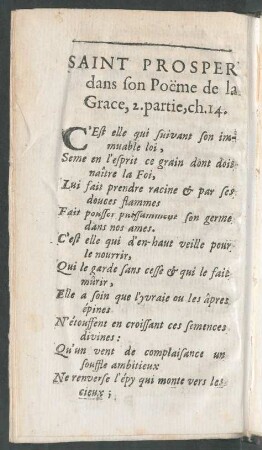 SAINT PROSPER
dans ſon Poëme de la
Grace, 2. partie, ch. 14.
C'Eſt elle qui ſuivant ſon im-
muable loi,
Seme en l'eſprit ce grain dont doit
naître la Foi,
Lui fait prendre racine & par ſes
douces flammes
Fait pouſſer puiſſamment ſon germe
dans nos ames.
C'eſt elle qui d'en-haut veille pour
le nourrir,
Qui le garde ſans ceſſe & qui le fait
mûrir,
Elle a ſoin que l'yvraie ou les âpres
épines
N'étouffent en croiſſant ces ſemences
divines :
Qu'un vent de complaiſance un
ſouffle ambitieux
Ne renverſe l'épy qui monte vers les
cieux ;